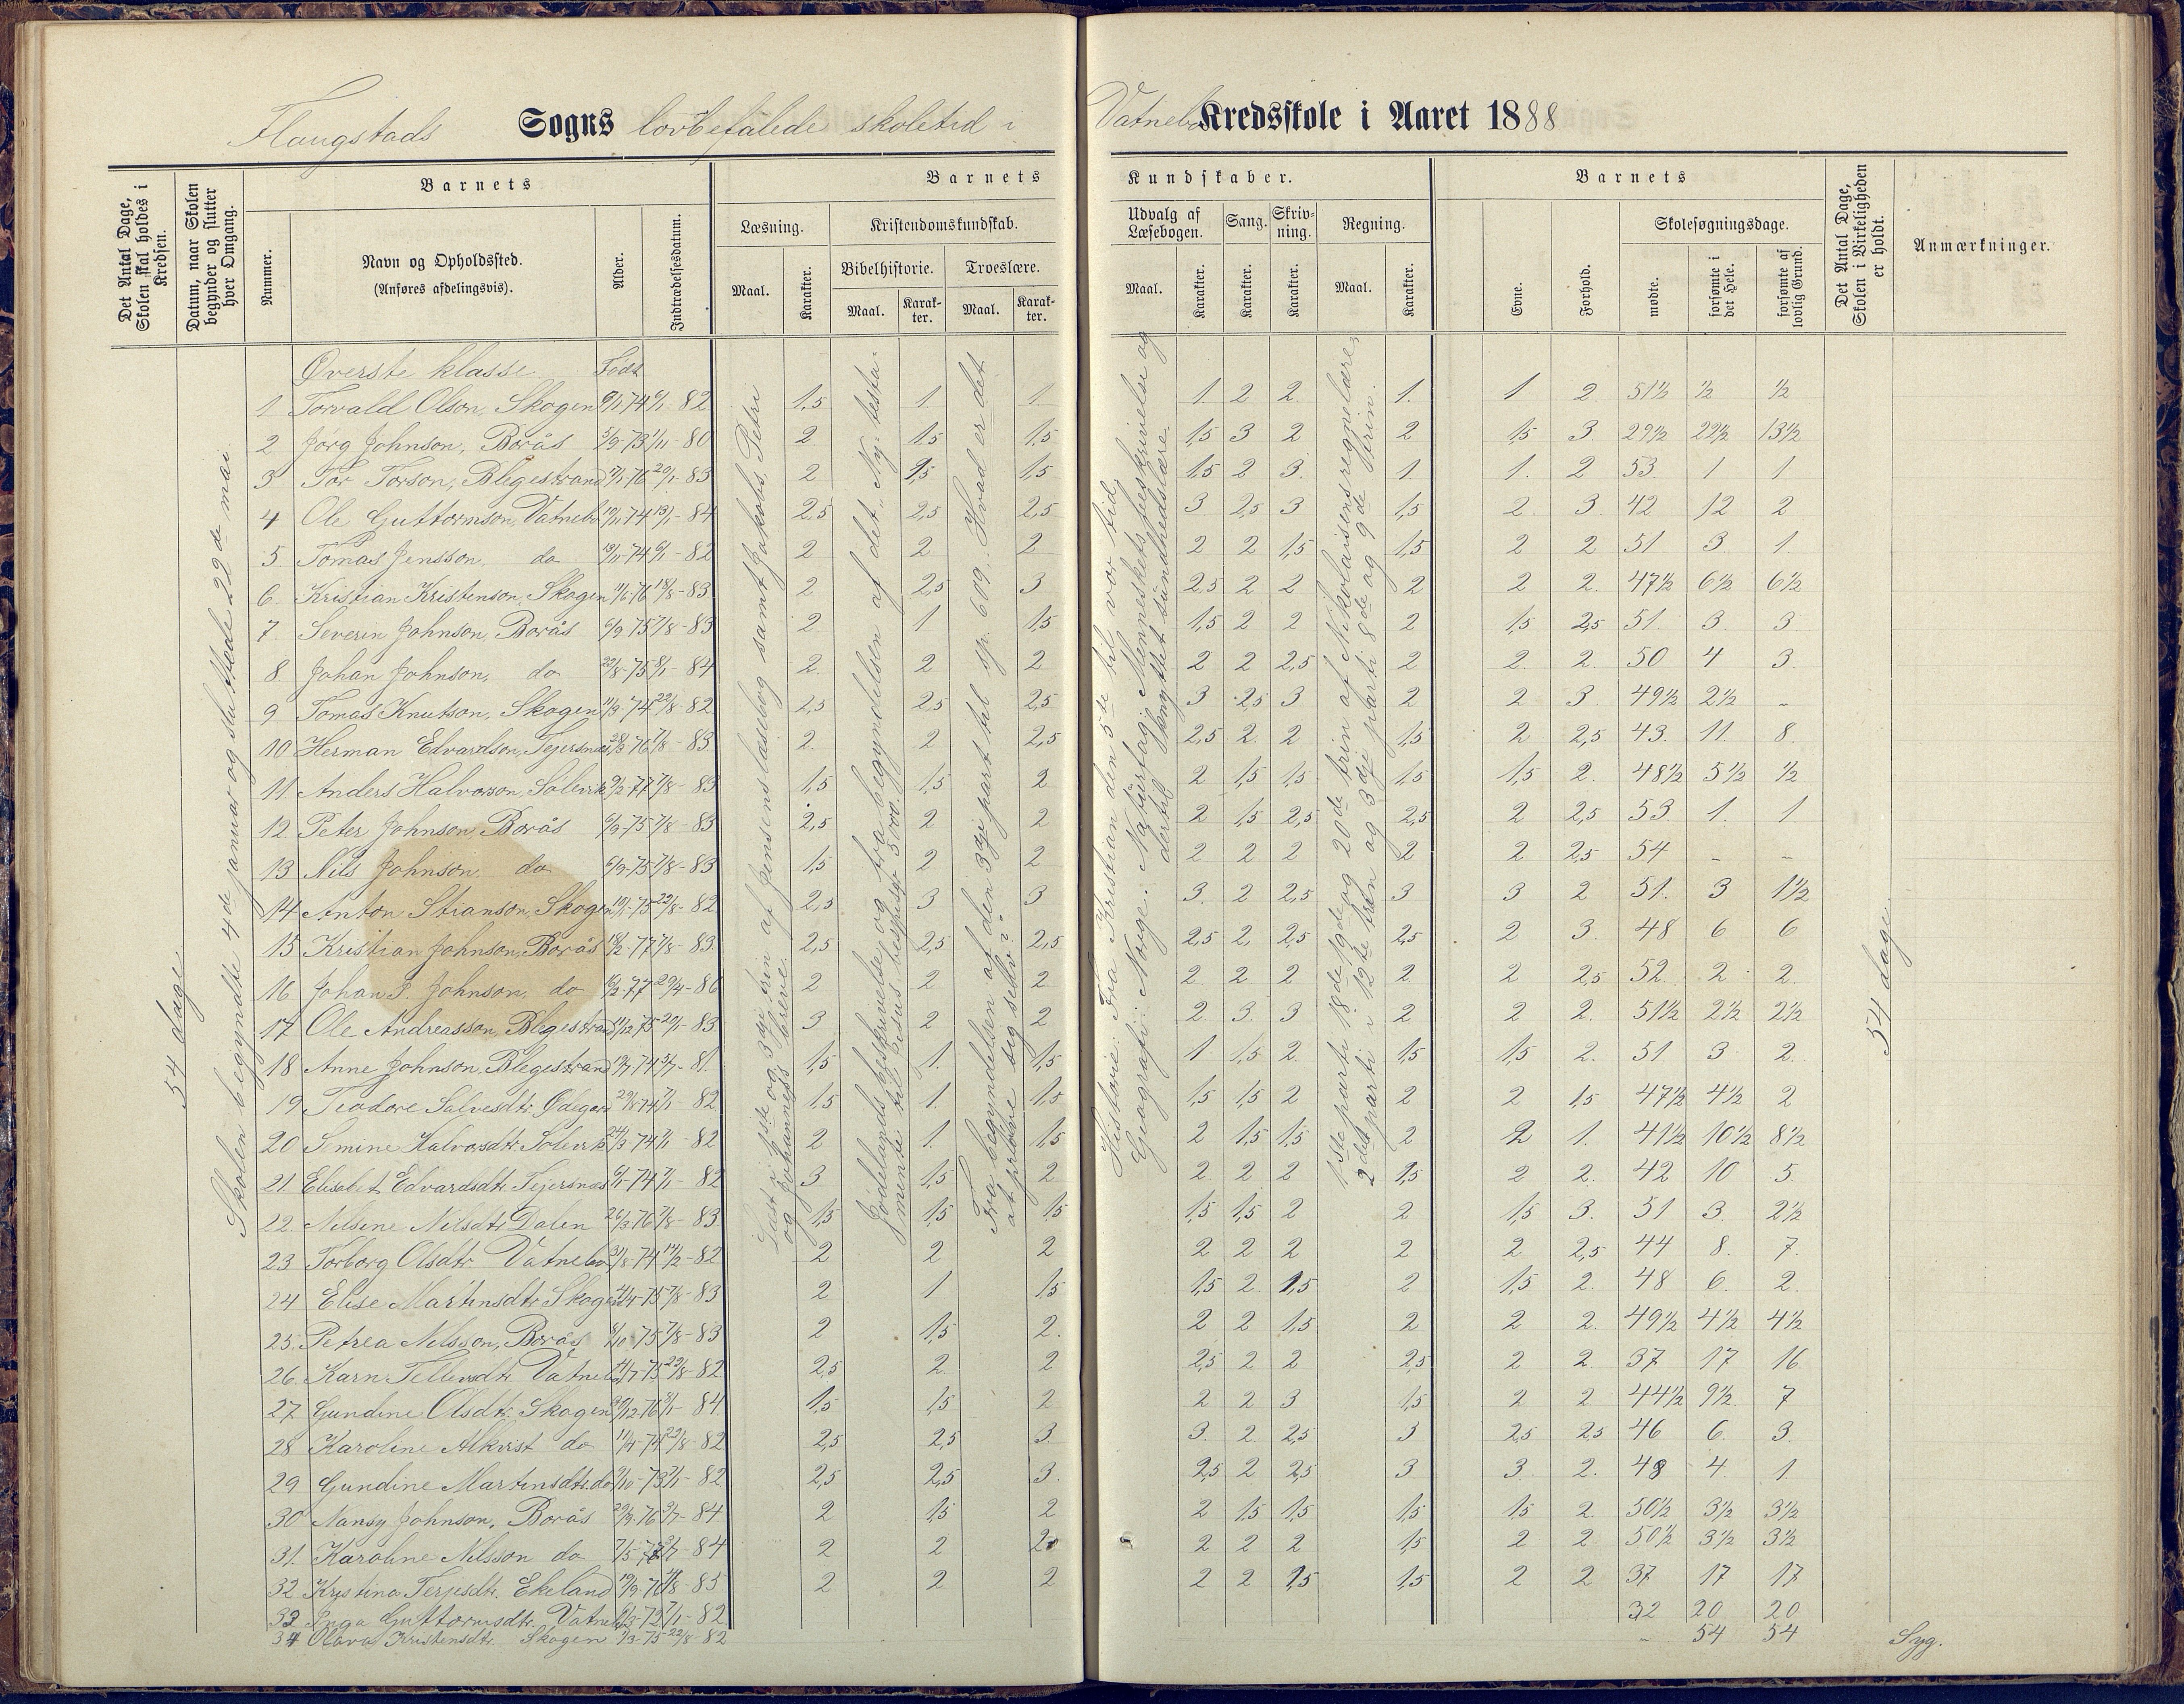 Flangstads Sogns lovbefalede skoletid i Vatnebo Kredsskole i Aaret 1888
Det Antal Dage, Skolen skal holdes i Kredsen.
Datum, naar Skolen begynder og slutter hver Omgang.
Barnets
Nummer.
Navn og Opholdssted.
(Anføres afdelingsvis).
Alder.
Indtrædelsesdatum.
Barnets Kundskaber.
Læsning.
Maal.
Karakter.
Kristendomskundskab.
Bibelhistorie.
Maal.
Karakter.
Troeslære.
Maal.
Karakter.
Udvalg af Læsebogen.
Maal.
Karakter.
Sang.
Karakter.
Skrivning.
Karakter.
Regning.
Maal.
Karakter.
Barnets
Evne.
Forhold.
Skolesøgningsdage.
mødte.
forsømte i det Hele.
forsømte af lovlig Grund.
Det Antal Dage, Skolen i Virkeligheden er holdt.
Anmærkninger.
54 dage.
Skolen begyndte 4de januar og sluttede 22de mai.
Læst i 1ste og 3dje trin af Jensens læsebog samt Jakobs, Petri
og Johannes's breve.
Jødelands beskrivelse og fra begyndelsen af det "Ny testa-
mente" til "Jesus bespiser 5000".
Fra begyndelsen af den 3dje part til sp. 609: Hvad er det
at prøve sig selv?
Historie: Fra Kristian den 5te til vor tid.
Geografi: Norge. Naturfag: Menneskets beskrivelse og
dertil knyttet sundhedslære.
1ste parti 18de, 19de og 20de trin af Nikolaisens regnelære,
2det parti i 12te trin og 3dje parti 8de og 9de trin.
54 dage.
Øverste klasse Født
1 Torvald Olson, Skogen 9/11-74 9/1-82 1,5 1. 1 1 2 2. 1. 1 2. 51½ ½ ½
2 Jørg Johnson, Borås 5/9-73 1/11-80 2 1,5 1,5 1,5 3 2 2 1,5 3. 29½ 22½ 13½
3 Tor Torson, Blegestrand 17/1-76 20/1-83 2 1,5 1,5 1,5 2 3. 1. 1. 2 53. 1 1
4 Ole Guttormson, Vatnebo 19/11-74 13/1-84 2,5 2,5 2,5 3 2,5 3 1,5 2. 3. 42 12 2
5. Tomas Jensson, do 19/11-74 9/1-82 2 2 2 2 2 1,5 1,5 2 2 51 3. 1.
6. Kristian Kristenson, Skogen 11/6-76 18/8-83 2 2,5 3 2,5 2 2 2 2 2. 47½ 6½ 6½
7. Severin Johnson, Borås 6/9-75 7/8-83 2 1 1,5 1,5 2 2 2 1,5 2,5 51. 3. 3
8 Johan Johnson, do 22/8-75 8/1-84 2. 2 2 2 2 2,5 2 2. 2. 50 4 3.
9 Tomas Knutson, Skogen 11/9-74 22/8-82 2,5 2,5 2,5 3 2,5 3 2 2 3 49½ 2½ -
10. Herman Edvardson, Tejersnæs 28/3-76 7/8-83. 2. 2 2,5 2,5 2. 2 1,5 2 2,5 43. 11. 8.
11. Anders Halvorson, Sølevik 9/2-77 7/8-83 1,5 1,5 2 2 1,5 1,5 1,5 1,5 2. 48½ 5½ ½
12. Peter Johnson, Borås 6/9-75 7/8-83 2,5 2 2 2 1,5 2,5 2,5 2 2,5 53. 1. 1.
13 Nils Johnson. do 6/9-75 7/8-83 1,5 2 2 2 2 2 2 2 2,5 54 - -
14 Anton Stianson, Skogen 19/1-75 22/8-82 2,5 3 3 3. 2 2,5 3 3 2 51. 3 1½
15 Kristian Johnson, Borås 18/2-77 7/8-83. 2,5 2,5 2,5 2,5 2. 2,5 2,5 2 3. 48 6 6
16. Johan P. Johnson, do 16/2-77 29/4-86 2 2 2 2 2 2 2 2 2,5 52. 2. 2.
17 Ole Andreasson, Blegestrand 11/12-75 20/1-83. 3 2 2 2. 3. 3 2 2 2. 51½ 2½ 2½
18 Anne Johnson, Blegestrand 19/7-74 3/7-81. 1,5 1. 1,5 1 1,5 2. 1,5 1,5 2. 51 3 2.
19 Teodore Salvesdtr. Ødegård 29/8-74 7/1-82 1,5 1. 1,5 1,5 1,5 2 2 2 1,5 47½ 4½ 2
20 Semine Halvorsdtr. Sølevik 24/3-74 7/1-82 2 1. 1,5 2 1,5 1,5 2 2 1. 41½ 10½ 8½
21 Elisabet Edvardsdtr. Tejersnæs 6/1-74 7/1-82 3 1,5 2 2 2 2 1,5 2 2. 42 10 5.
22. Nilsine Nilsdtr. Dalen 26/3-76 7/8-83 1,5 1,5 1,5 1,5 1,5 2 2 1,5 3. 51 3. 2½
23. Torborg Olsdtr. Vatnebo 31/8-74 14/2-82 2 2 2 2 2 2 2 2 2,5 44 8. 7.
24 Elise Martinsdtr. Skogen 4/4-75 7/8-83 2 1 1,5 1,5 2. 1,5 2 1,5 2. 48 6. 2.
25. Petrea Nilsson, Borås 8/10-75 7/8-83 2 1,5 2. 2 2 1,5 2 2 2. 49½ 4½ 4½
26. Karn Tellevsdtr. Vatnebo 14/7-75 22/8-82 2,5 2. 2 2,5 2 2 2,5 2 2 37 17 16
27 Gundine Olsdtr. Skogen 29/12-76 8/1-84. 1,5 1,5 2 2 2 3 1,5 2 2 44½ 9½. 7
28 Karoline Alkvist do 11/4-74 22/8-82 2,5 2,5 3. 3. 2. 2,5 3 2,5 2,5 46 6. 3.
29 Gundine Martinsdtr. do 9/10-73 7/1-82 2,5 2,5 3. 2,5 2 2,5 3 3 2. 48 4 1
30 Nansy Johnson, Borås 29/9-76 9/7-84 2 1,5 2 2 1,5 1,5 1,5 1,5 2. 50½ 3½ 3½
31. Karoline Nilsson do 7/5-77 9/7-84 2 2 2 2 2 2 1,5 2 2 50½ 3½ 3½
32 Kristina Terjesdtr. Ekeland 19/9-76 4/8-85 2 2 2 2 2 1,5 1,5 2 2 37 17 17
33 Inga Guttormsdtr. Vatnebo 6/3-72 7/1-82 32 20 20
34 Olava Kristensdtr. Skogen 1/3-75 22/8-82 - 54 54 Syg.